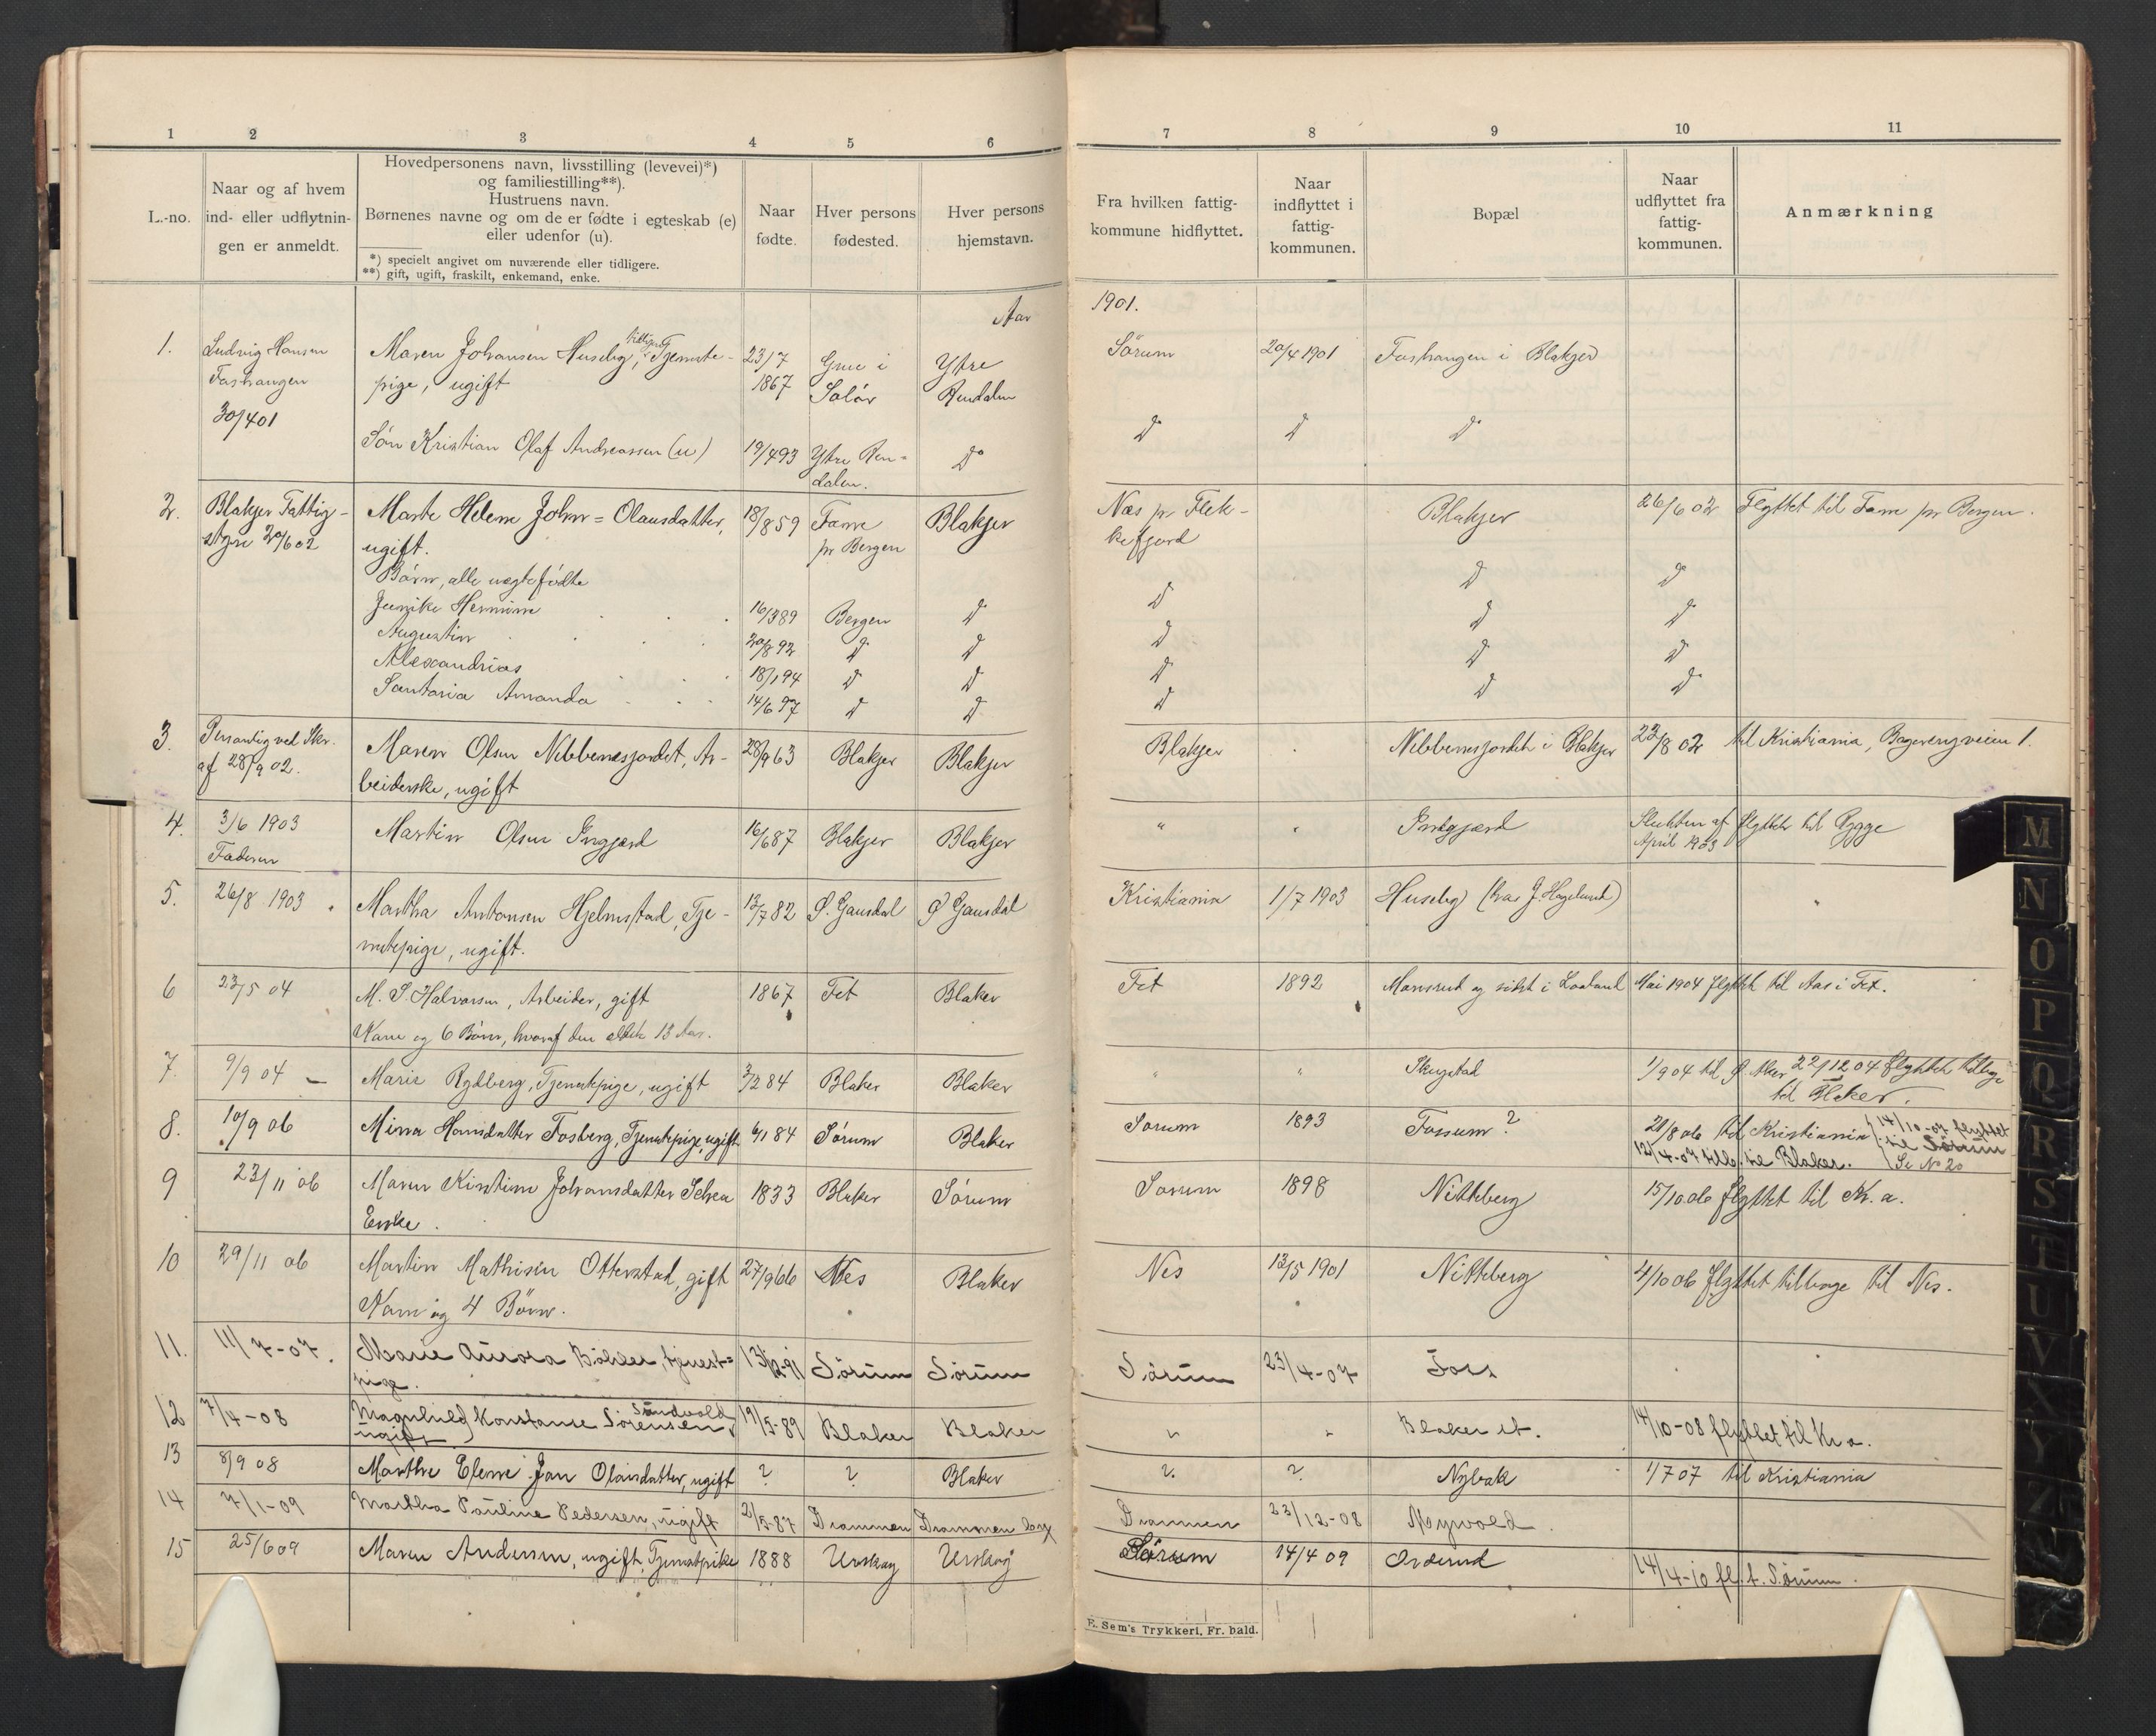 1 2 3 4 5 6 7 8 9 10 11
L.-no.
Naar og af hvem
ind- eller udflytnin-
gen er anmeldt.
Hovedpersonens navn, livsstilling (levevei)*)
og familiestilling**).
Hustruens navn.
Børnenes navne og om de er fødte i egteskab (e)
eller udenfor (u).
*) specielt angivet om nuværende eller tidligere.
**) gift, ugift, fraskilt, enkemand, enke.
Naar
fødte.
Hver persons
fødested.
Hver persons
hjemstavn.
Fra hvilken fattig-
kommune hidflyttet.
Naar
indflyttet i
fattig-
kommunen.
Bopæl
Naar
udflyttet fra
fattig-
kommunen.
Anmærkning
Aar 1901.
1. Ludvig Hansen Maren Johansen Huseby, Tjeneste- 23/7 Grue i Ytre Sörum 20/4 1901 Foshaugen i Blakjer
Foshaugen pige, ugift 1867 Solör Rendalen
30/4 01
Sön Kristian Olaf Andreassen (u) 19/4 93 Ytre Ren- Do Do Do Do
dalen.
2. Blakjer Fattig- Marte Helene John = Olausdatter, 18/8 59 Fane Blakjer Næs pr Flek- Blakjer 26/6 02 Flyttet til Fane pr Bergen.
styre 20/6 02 ugift. pr Bergen kefjord
Börn, alle uegtefödte
Hermine 16/3 89 Bergen Do Do Do Do
Augustin 20/8 92 Do Do Do Do Do
Alexandrias 18/1 94 Do Do Do Do Do
Santaria Amanda 14/6 97 Do Do Do Do Do
3. Personlig ved Skr. Maren Olsen Nibbenesjordet, Ar- 28/9 63 Blakjer Blakjer Blakjer Nibbenesjordet i Blakjer 22/8 02 til Kristiania, 1.
af 28/9 02. beiderske, ugift
4. 3/6 1903 Martin Olsen Ingjerd 16/6 87 Blakjer Blakjer " " Slutten af flyttet til Rygge
Faderen April 1903
5. 26/8 1903 Martha Antonsen Hjelmstad, Tje- 13/7 82 Ö. Gausdal Ö Gausdal Kristiania 1/7 1903 Huseby (hos J. Hagelund)
nestepige, ugift.
6 23/5 04 M. S. Halvorsen, Arbeider, gift 1867 Fet Blaker Fet 1892 Mansrud og sidst i Loeland Mai 1904 flyttet til Aas i Fet.
Kone og 6 Börn, hvoraf den eldste 13 Aar.
7. 9/9 04 – Marie Rydberg, Tjenestepige, ugift 3/2 84 Blaker Blaker " " Skugstad 1/9 04 til Ö. Aker 22/12 04 flyttet tilbage
til Blaker.
8. 10/9 06 Mina Hansdatter Fosberg, Tjenestepige, ugift 6/1 84 Sörum Blaker Sorum 1893 Fossum? 21/8 06 til Kristiania 14/10-07 flyttet
12/4-07 tilb. til Blaker. til Sörum
Se No 20
9 23/11 06 Maren Kirstine Johansdatter 1833 Blaker Sörum Sorum 1898 Nitteberg 15/10 06 flyttet til Kr. a.
Enke.
10 29/11 06 Martin Mathisen Otterstad, gift 27/9 66 Nes Blaker Nes 13/5 1901 Nitteberg 4/10 06 flyttet tilbage til Nes.
Kone og 4 Börn.
11. 11/7-07. Marie Aurora Böhler, tjenest= 13/12-91 Sörum Sörum Sörum 23/4-07 Foss
pige.
12 7/4-08 Magnhild Konstanse Sörensen Sandvold 19/5-89 Blaker Blaker " " Blaker st. 14/10-08 flyttet til Kr a.
ugift
13 8/9 08 Marthe Elene Jan Olausdatter, ugift ? ? Blaker ?. ?. Nybak 1/7 07 til Kristiania
14 7/1-09 Martha Pauline Pedersen, ugift 2/5-87 Drammen Drammen Drammen 23/12-08 Mogvold
15 25/6 09 Maren Andersen, ugift, Tjenestpike 1888 Urskog Urskog Sörum 14/4 09 Orderud 14/4-10 fl. t. Sörum.
E. Sem's Trykkeri, Fr. hald.
M
N
O
P
Q
R
S
T
U
V
X
Y
Z